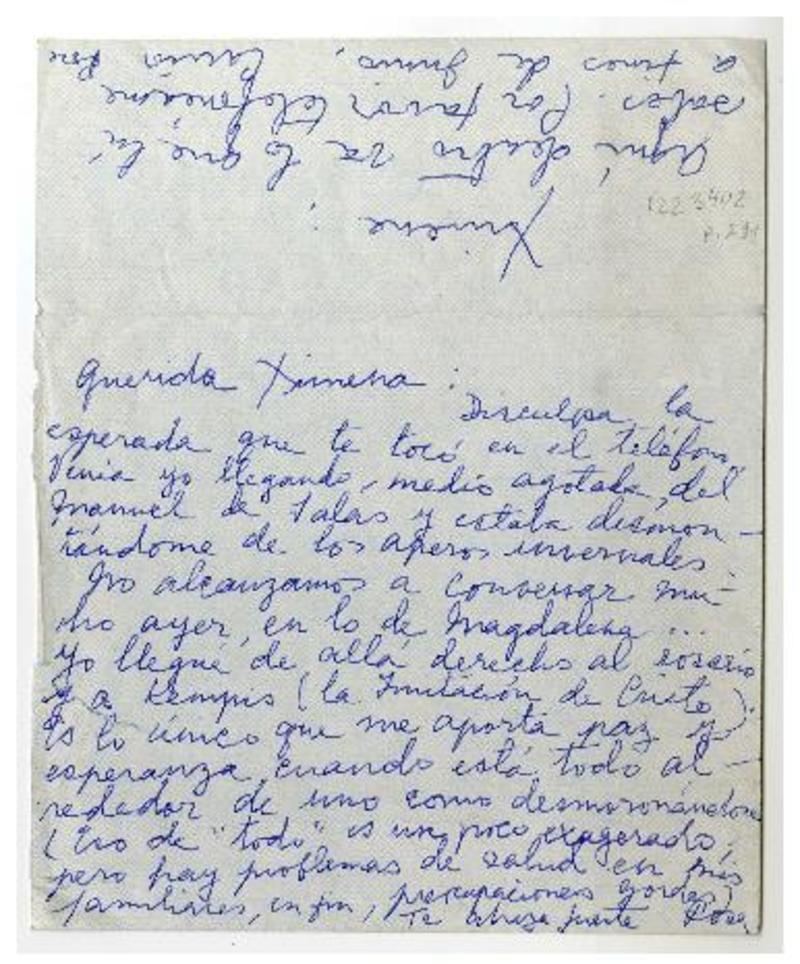 Ximena :
Aquí dentro va lo que tú
sabes. Por favor telefonéame
a fines de Junio,
1223402
Querida Ximena :
Disculpa la
esperada que te tocó en el teléfono,
Venía yo llegando, medio agotada, del
Manuel de Salas y estaba desmon-
tándome de los aperos invernales.
No alcanzamos a conversar mu-
cho ayer, en lo de Magdalena ...
Yo llegué de allá derecho al rosario
y a Kempis (la Imitación de Cristo).
Es lo único que me aporta paz y
esperanza cuando está todo al-
rededor de uno como desmoronándose
(Eso de "todo" es un poco exagerado,
pero hay problemas de salud en mis
familiares, en fin, preocupaciones gordas)
Te abraza fuerte Rosa